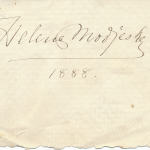 Helena Modjeska
1888.